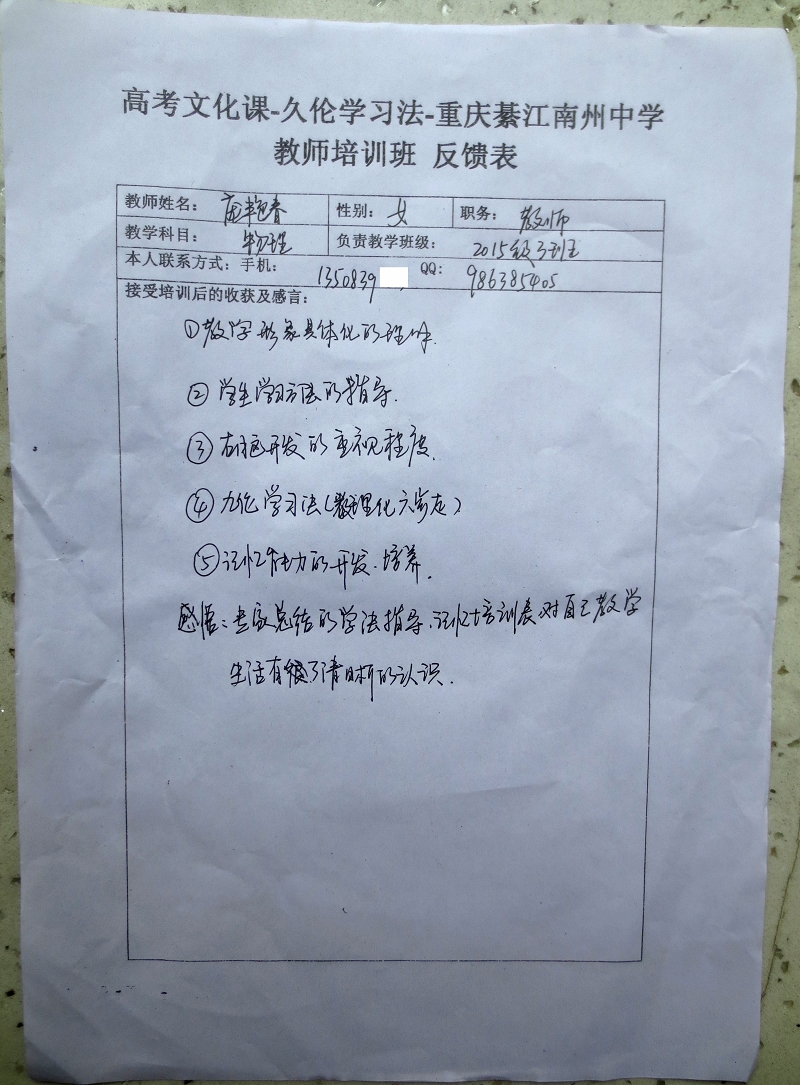 高考文化课-久伦学习法-重庆綦江南州中学
教师培训班 反馈表
教师姓名： 性别：女 职务：教师
教学科目：物理 负责教学班级：2015级3班
本人联系方式：手机：1350839 QQ：986385405
接受培训后的收获及感言：
①教学形象具体化的理解.
②学生学习方法的指导.
③右脑开发的重视程度.
④九伦学习法(数理化六步法)
⑤记忆能力的开发.培养.
感悟：专家总结的学法指导.记忆培训表.对自己教学
生活有很了清晰的认识.